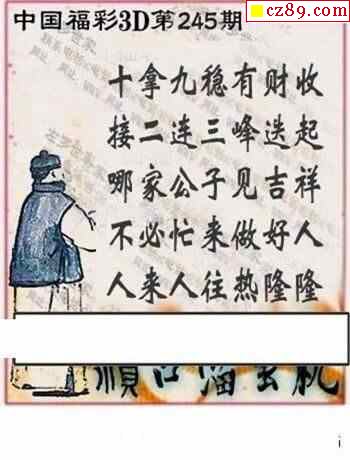 cz89.com
中国福彩3D第245期
十拿九稳有财收
接二连三峰迭起
哪家公子见吉祥
不必忙来做好人
人来人往热隆隆